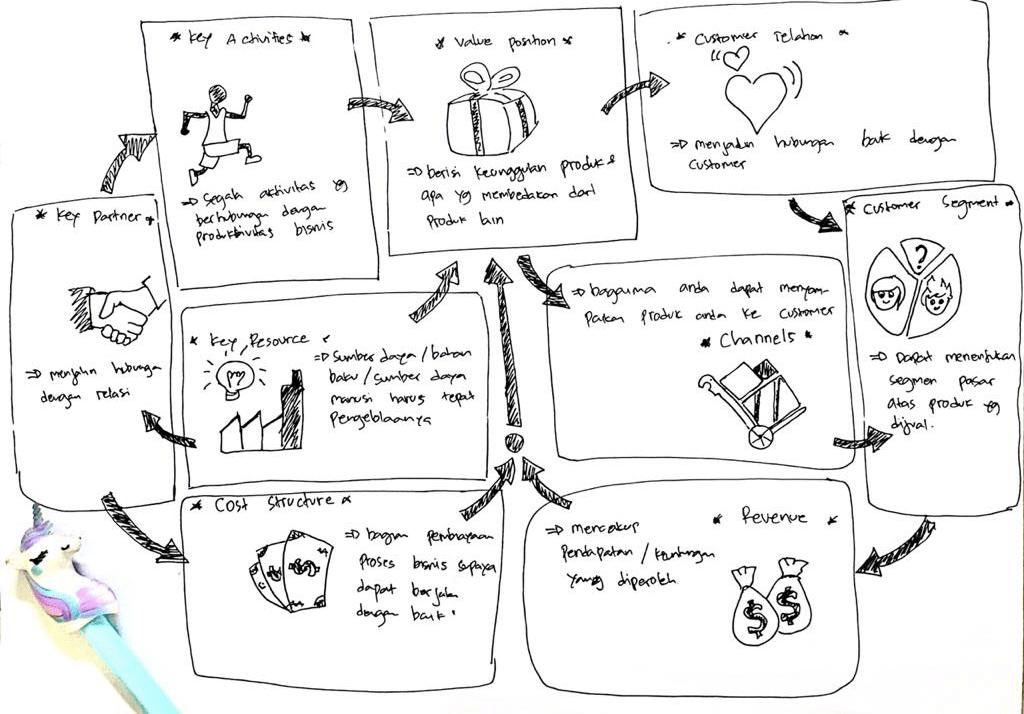 * Key Activities *
⇒ Segala aktivitas yg
berhubungan dengan
produktivitas bisnis
* Value position *
⇒ berisi keunggulan produk &
apa yg membedakan dari
produk lain
* Customer relation *
⇒ menjadun hubungan baik dengan
customer
* Key Partner *
⇒ menjalin hubunga
dengan relasi
* Key Resource *
⇒ Sumber daya / bahan
baku / sumber daya
manusi harus tepat
Pengeblaanya
⇒ bagaima anda dapat menyam-
paikan produk anda ke customer
* Channels *
* Customer Segment *
?
⇒ Dapat menentukan
segmen pasar
atas produk yg
dijual.
* Cost structure *
⇒ bagian pembiayaan
Proses bisnis supaya
dapat berjalan
dengan baik"
$
* Revenue *
⇒ mencakup
Pendapatan / keuntungan
yang diperoleh
$ $